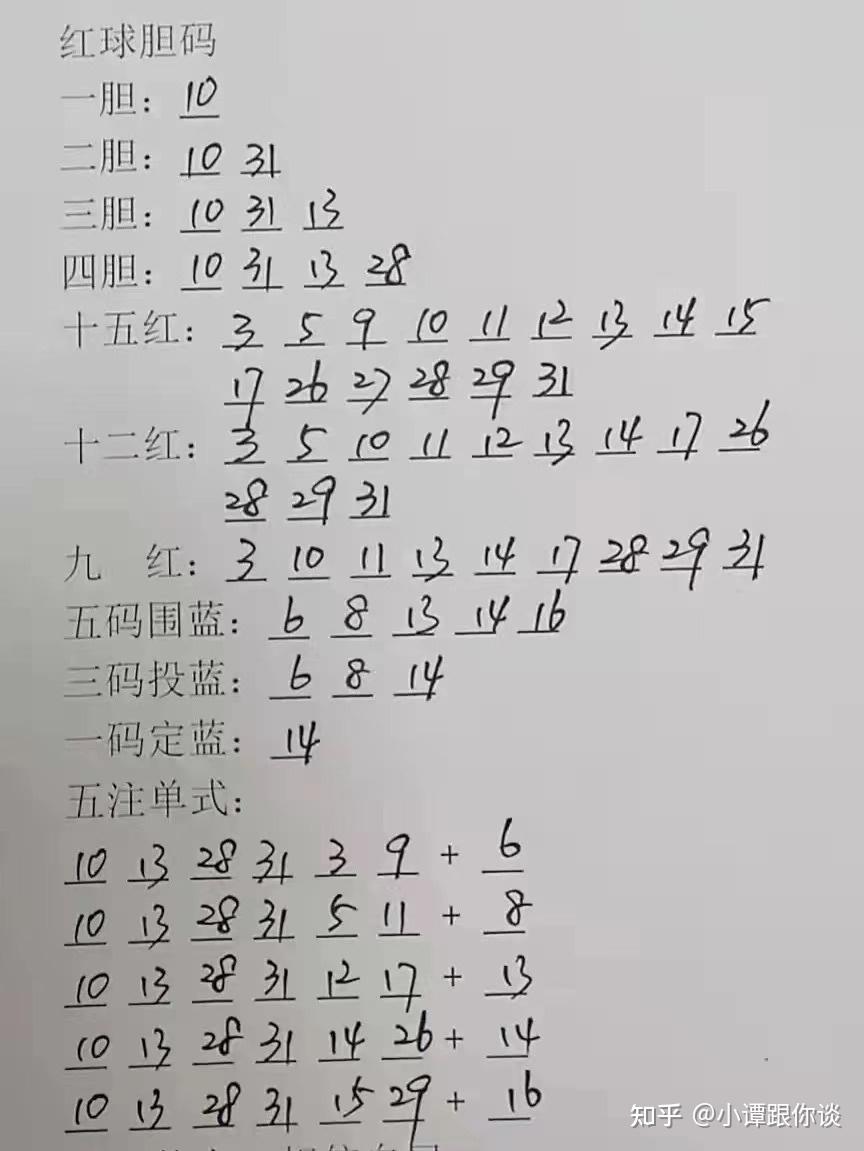 红球胆码
一胆：10
二胆：10 31
三胆：10 31 13
四胆：10 31 13 28
十五红：3 5 9 10 11 12 13 14 15
17 26 27 28 29 31
十二红：3 5 10 11 12 13 14 17 26
28 29 31
九 红：3 10 11 13 14 17 28 29 31
五码围蓝：6 8 13 14 16
三码投蓝：6 8 14
一码定蓝：14
五注单式：
10 13 28 31 3 9 + 6
10 13 28 31 5 11 + 8
10 13 28 31 12 17 + 13
10 13 28 31 14 26 + 14
10 13 28 31 15 29 + 16
知乎 @小谭跟你谈